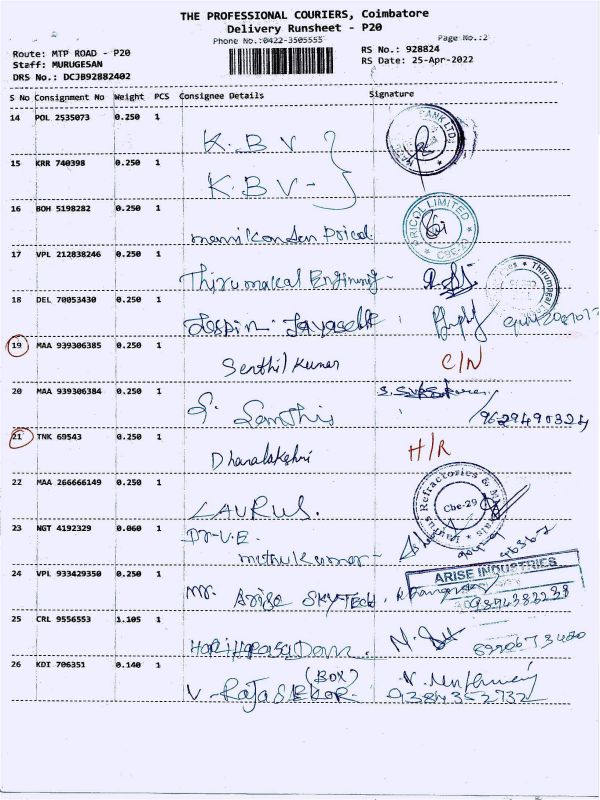 THE PROFESSIONAL COURIERS, Coimbatore
Delivery Runsheet - P20
Phone No.:0422-3505555
Page No.:2
Route: MTP ROAD - P20
RS No.: 928824
Staff: MURUGESAN
RS Date: 25-Apr-2022
DRS No.: DCJB92882402
S No Consignment No Weight PCS Consignee Details Signature
14 POL 2535073 0.250 1 K.B V
15 KRR 740398 0.250 1 K.B V-
16 BOH 5198282 0.250 1
PRICOL LIMITED
17 VPL 212838246 0.250 1 Thirumakal
18 DEL 70053430 0.250 1
19 MAA 939306385 0.250 1 Senthil kumar C/N
20 MAA 939306384 0.250 1 S.
21 TNK 69543 0.250 1 Dhanalakshmi H/R
22 MAA 266666149 0.250 1 LAURUS.
Cbe-29
23 NGT 4192329 0.060 1 Dr-V.E.
muthukumar-
24 VPL 933429350 0.250 1 Mr. Arise SKYTECH
ARISE INDUSTRIES
25 CRL 9556553 1.105 1
26 KDI 706351 0.140 1 V-RAJASEKAR- (BOX)
9384352732